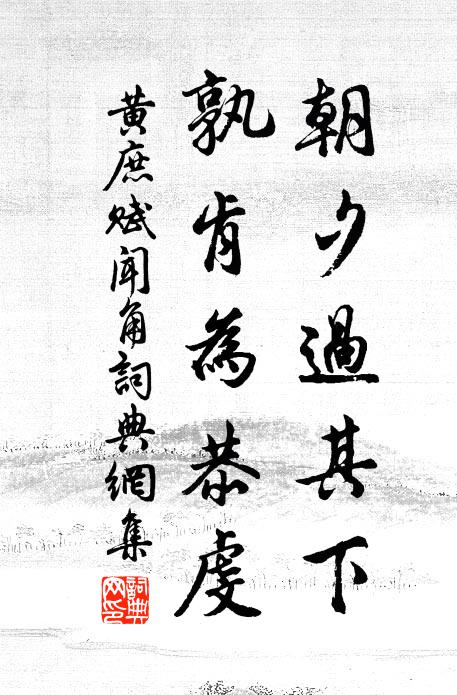 朝夕過其下
孰肯為恭虔
黃庶賦聞角詞典網集
詞典网印